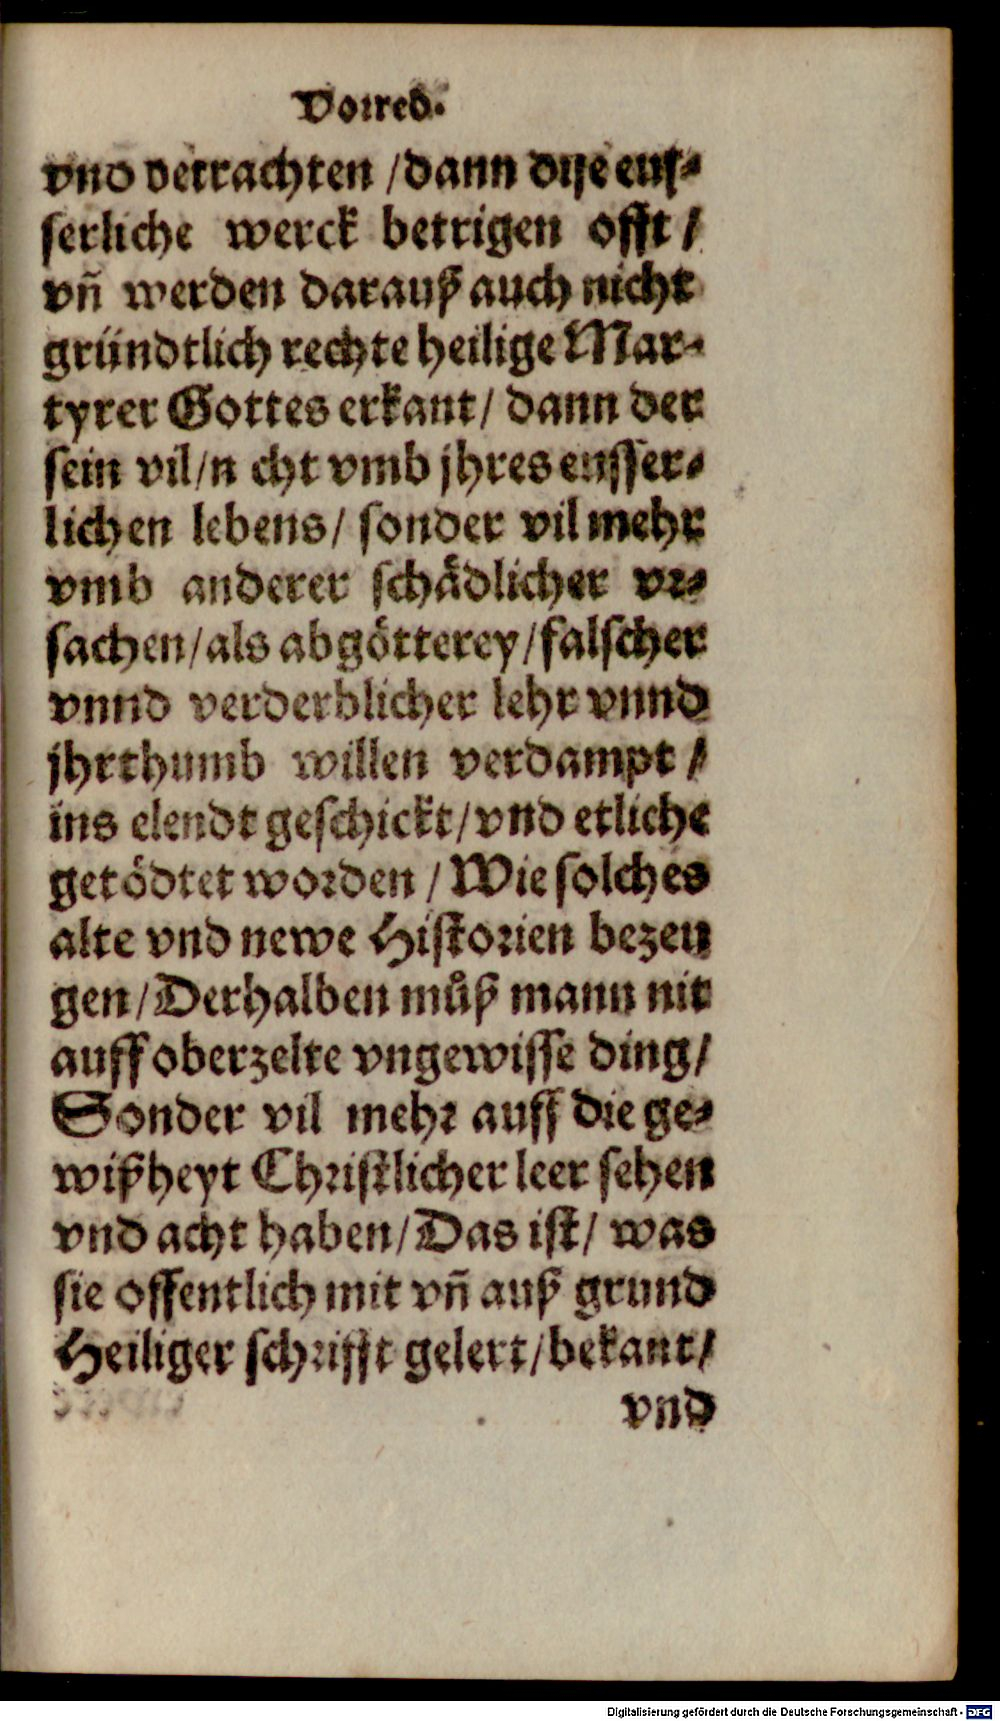 Vorred.
vnd betrachten /dann dise eus-
serliche werck betrigen offt /
vñ werden darauß auch nicht
gründtlich rechte heilige Mar-
tyrer Gottes erkant/ dann der
sein vil/n cht vmb jhres eusser-
lichen lebens/ sonder vil mehr
vmb anderer schädlicher vr-
sachen/als abgötterey/falscher
vnnd verderblicher lehr vnnd
jhrthumb willen verdampt /
ins elendt geschickt/vnd etliche
getödtet worden / Wie solches
alte vnd newe Historien bezeu
gen/Derhalben můß mann nit
auff oberzelte vngewisse ding/
Sonder vil mehr auff die ge-
wißheyt Christlicher leer sehen
vnd acht haben/Das ist/ was
sie offentlich mit vñ auß grund
Heiliger schrifft gelert/bekant/
vnd
Digitalisierung gefördert durch die Deutsche Forschungsgemeinschaft - DFG